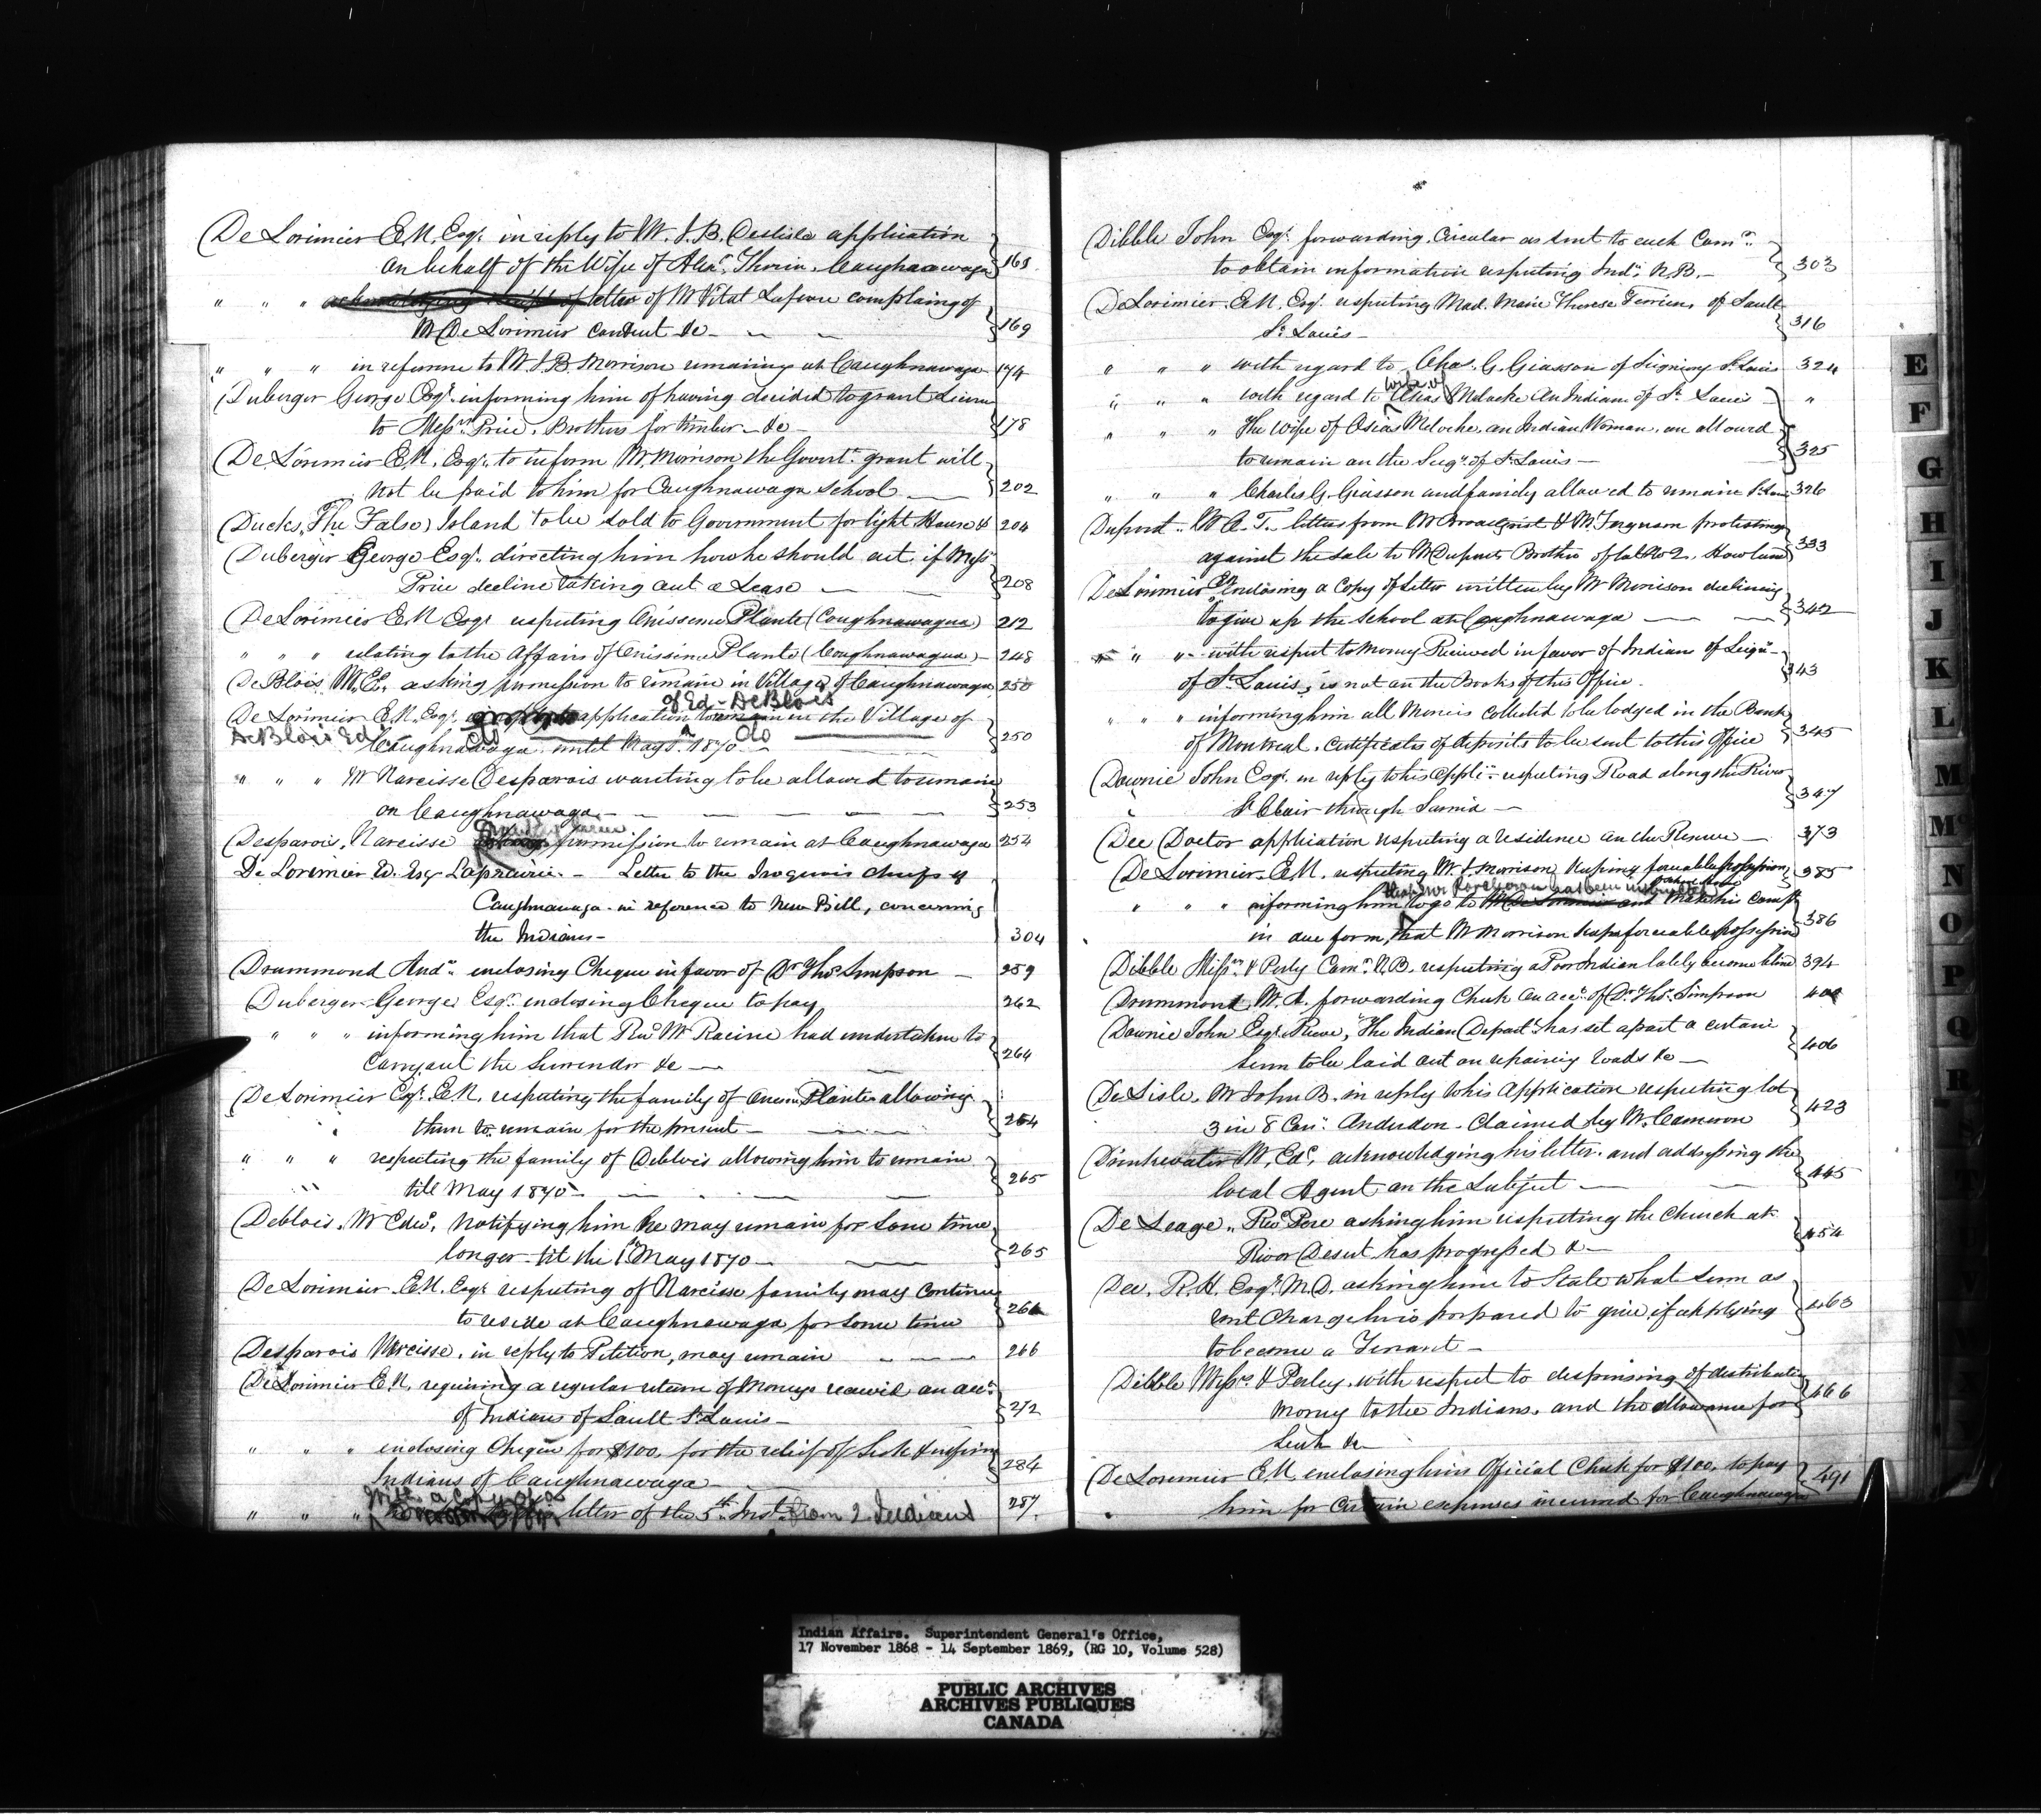 De Lorimier E.N. Esqr. in reply to Mr. J.B. Deslisle application
on behalf of the Wife of Alexr. Thorin, Caughnawaga 168
" " " letter of Mr Vital Lafleur complaing of
Mr De Lorimier conduct &c 169
" " " in reference to Mr. J.B. Morrison remaining at Caughnawaga 174
Duberger George Esqr. informing him of having decided to grant License
to Messrs Price, Brothers for timber &c 178
De Lorimier E.N. Esqr. to inform Mr. Morrison the Govert. grant will
not be paid to him for Caughnawaga School 202
Ducks, The False, Island to be sold to Government for light House & 204
Duberger George Esqr. directing him how he should act if Messrs
Price decline taking out a Lease 208
De Lorimier E N Esqr respecting Onissime Plante (Caughnawaga) 212
" " " relating to the Affairs of Onissime Plante (Caughnawaga) 248
DeBlois, Mr. Ed. asking permission to remain in Village of Caughnawaga 250
of Ed. DeBlois
De Lorimier E.N. Esqr. application to remain in the Village of
DeBlois Ed. do do
Caughnawaga until May 1st. 1870 250
" " " Mr Narcisse Desparois wanting to be allowed to remain
on Caughnawaga 253
Desparois, Narcisse permission to remain at Caughnawaga 254
De Lorimier E. Esq Laprairie. - Letter to the Iroquois chiefs of
Caughnawaga - in reference to New Bill, concerning
the Indians - 304
Drummond Andw. enclosing Cheque in favor of Dr Thos Simpson 259
Duberger George Esqr. enclosing Cheque to pay 262
" " " informing him that Revd Mr Racine had undertaken to
carry out the Surrender &c 264
De Lorimier Esqr. E.N. respecting the family of Onissime Plante allowing
them to remain for the present 264
" " " respecting the family of Deblois allowing him to remain
till May 1870 265
Deblois, Mr Edwd. Notifying him he may remain for some time
longer till the 1st May 1870 265
De Lorimier, E.N. Esqr respecting of Narcisse family may continue
to reside at Caughnawaga for some time 266
Desparois Narcisse, in reply to Petition, may remain 266
De Lorimier E.N. requiring a regular return of Moneys received on acct.
of Indians of Sault St Louis 272
" " " enclosing Cheque for $100. for the relief of Sick & suffering
Indians of Caughnawaga 284
With a copy of a
" " " letter of the 5th. Inst. from 2 Indians 287.
Dibble John Esqr. forwarding Circular as sent to each Comr.
to obtain information respecting Inds. N.B. 303
De Lorimier E.N. Esqr. respecting Mad. Marie Therese Terrien, of Sault
St. Louis 316
" " " with regard to Chas. G. Giasson of Seigniory St Louis 324
wife of
" " " with regard to Meloche An Indian of St Louis "
" " " The Wife of Meloche, an Indian Woman, are allowed
to remain on the Seigy. of St. Louis 325
" " " Charles G. Giasson and family allowed to remain St Louis 326
Dupont, W A. T. letters from Mr & Mr. Ferguson protesting
against the sale to Mr Duponts Brother of lot No 2. Howland 333
De Lorimier E N Enclosing a Copy of Letter written by Mr Morrison declining
to give up the School at Caughnawaga 342
" " " with respect to Money Received in favor of Indians of Seigy.
of St. Louis, is not on the Books of this Office. 343
" " " informing him all Moneis Collected to be lodged in the Bank
of Montreal. Certificates of deposits to be sent to this Office 345
Downie John Esqr. in reply to his Appli. respecting Road along the River
St Clair through Sarnia 347
Dee Doctor application respecting a residence on the Reserve 373
De Lorimier. E.N. respecting Mr. J. Morrison Keeping forceable possession 385
" " " informing him to go to and make his Compt.
in due form, that Mr Morrison keeps forceable possession 386
Dibble Messrs. & Perly Comrs. N.B. respecting a Poor Indian lately become blind 394
Drummond, Mr. A. forwarding Check on acct. of Dr. Thos. Simpson
Downie John Esqr. Reeve, The Indian Depart. has set apart a certain
sum to be laid out on repairing roads &c 406
De Lisle, Mr John B. in reply to his Application respecting lot
3 in 8 Con. Anderdon - Claimed by Mr. Cameron 423
Drinkwater Mr. Ed. acknowledging his letter and addressing the
local Agent on the Subject 445
De Leage, Revd. Pere asking him respecting the Church at
River Desert has progressed &c 454
Dee, R.H. Esqr. M.D. asking him to State what sum as
rent Charge he is prepared to give if applying
to become a Tenant 463
Dibble Messrs. & Perley, with respect to dispensing of distribution
money to the Indians, and the allowance for
Seed &c 466
De Lorimier E N enclosing him Official Check for $100. to pay
him for Certain expenses incurred for Caughnawaga 491
E
F
G
H
I
J
K
L
M
Mc
N
O
P
Q
R
Indian Affairs. Superintendent General's Office,
17 November 1868 - 14 September 1869, (RG 10, Volume 528)
PUBLIC ARCHIVES
ARCHIVES PUBLIQUES
CANADA